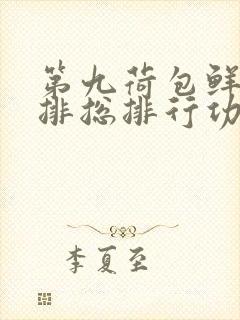 第九荷包鲜
排总排行功
李夏至